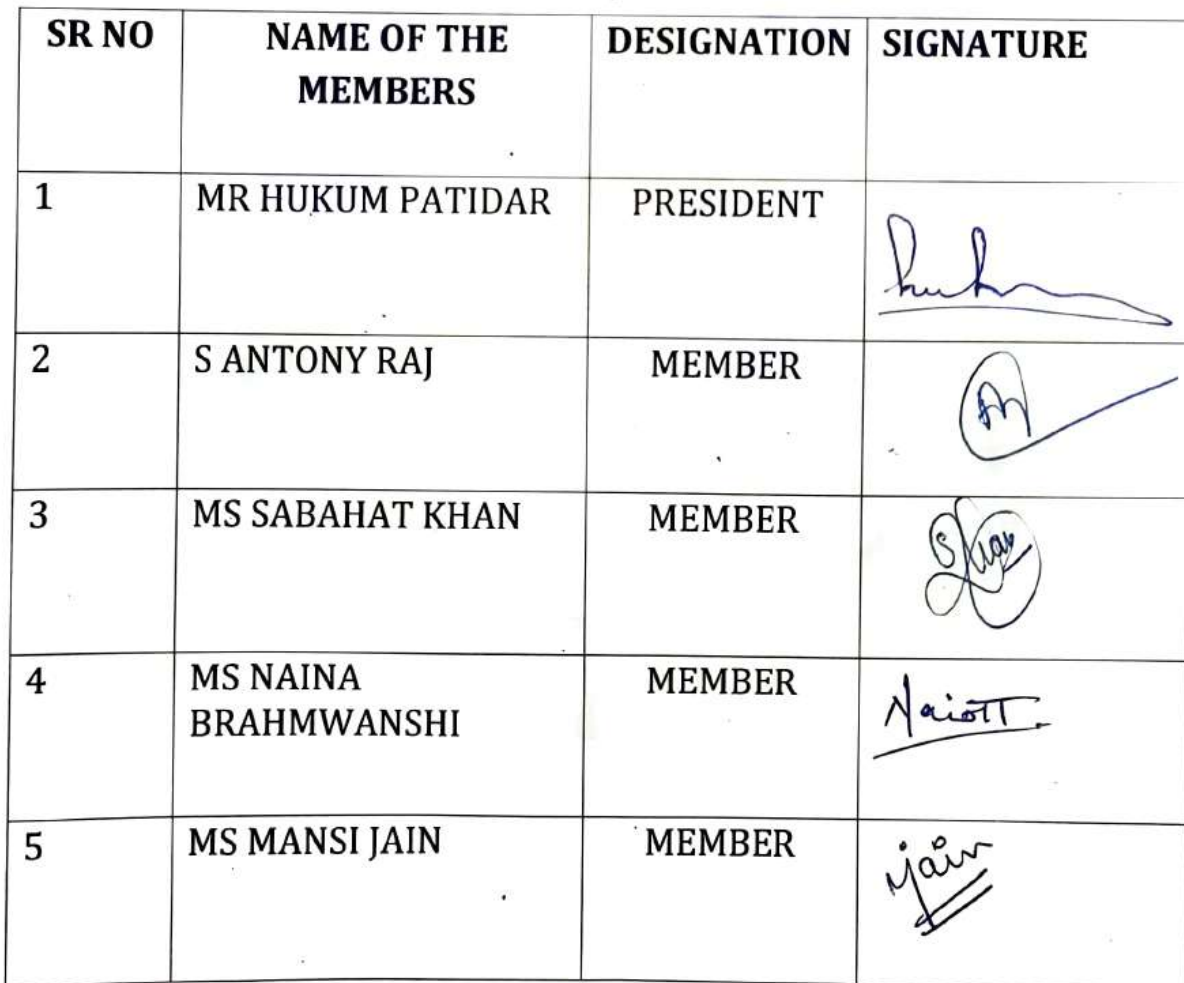 SR NO
NAME OF THE
MEMBERS
DESIGNATION
SIGNATURE
1
MR HUKUM PATIDAR
PRESIDENT
2
S ANTONY RAJ
MEMBER
3
MS SABAHAT KHAN
MEMBER
4
MS NAINA
BRAHMWANSHI
MEMBER
5
MS MANSI JAIN
MEMBER
Jain